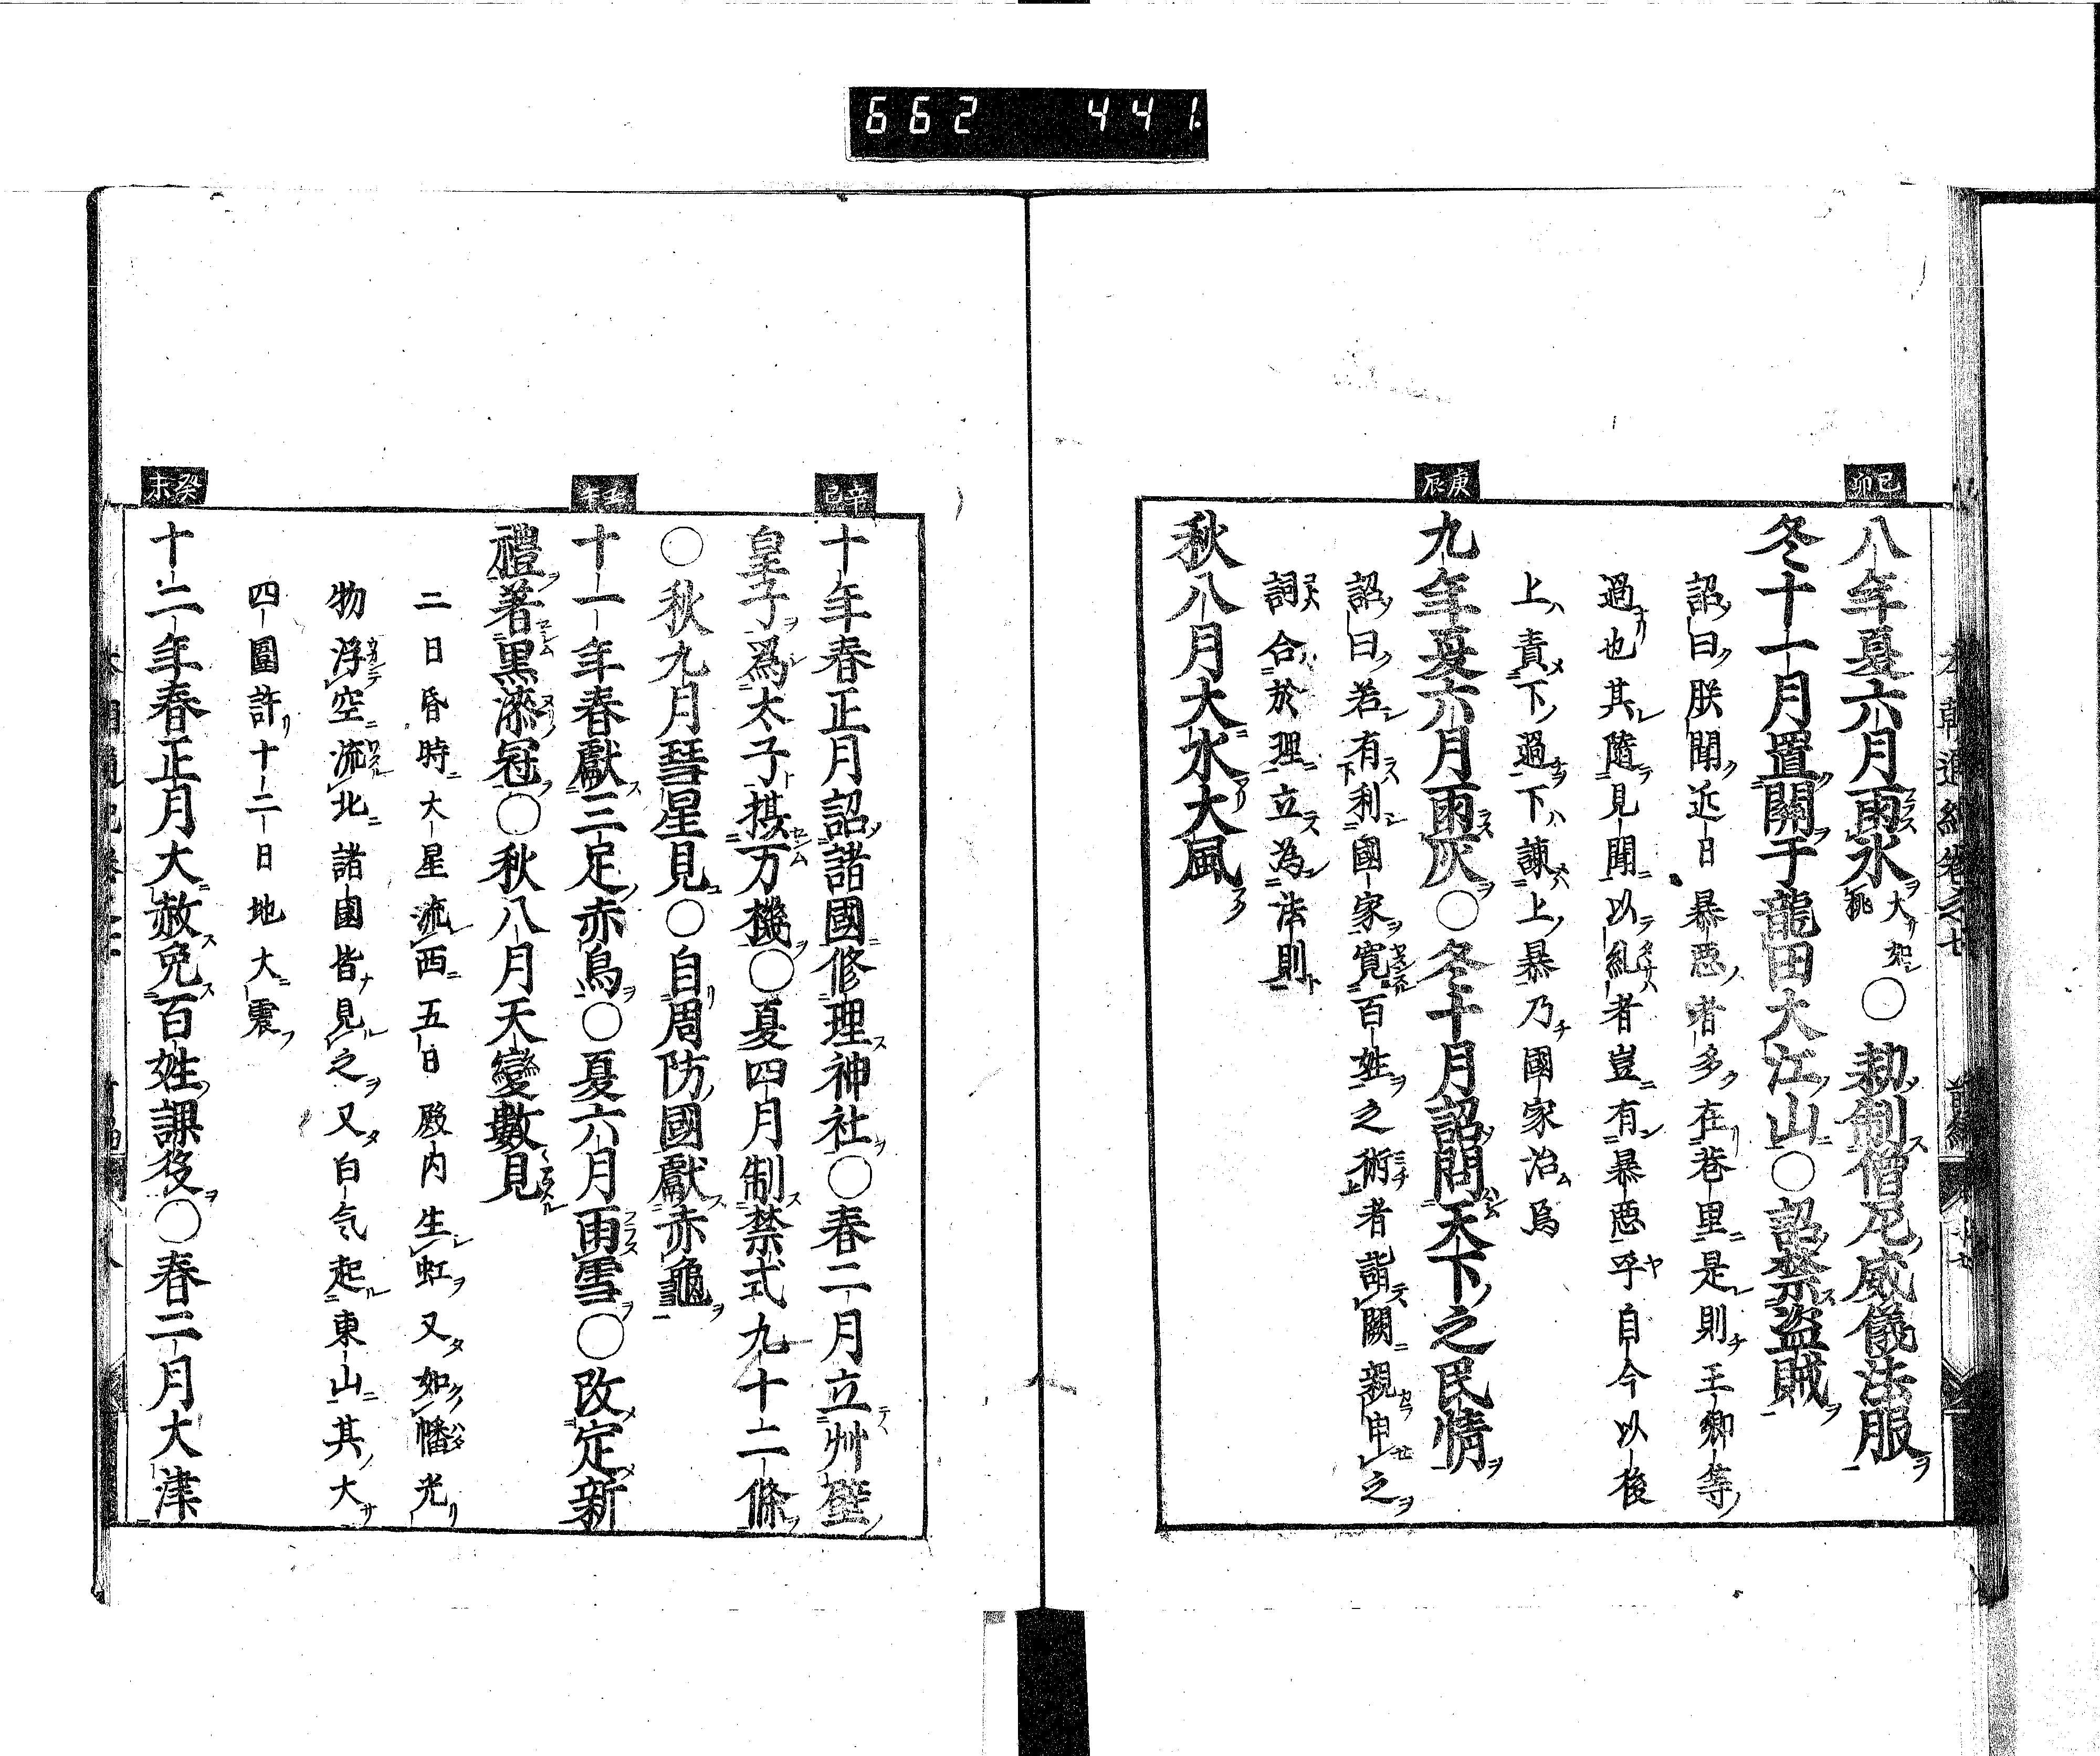 662 441
本朝通紀卷之七
前編
己卯
八年夏六月雨氷大如桃○勅制僧尼威儀法服
冬十一月置關于龍田大江山○詔禁盗賊
詔曰朕聞近日暴悪者多在巷里是則王卿等
過也其隨見聞以糺者豈有暴悪乎自今以後
上責下過下諫上暴乃國家治焉
庚辰
九年夏六月雨灰○冬十月詔問天下之民情
詔曰若有利國家寛百姓之術者詣闕親申之
詞合於理立為法則
秋八月大水大風
辛巳
十年春正月詔諸國修理神社○春二月立艸壁
皇子爲太子摂万機○夏四月制禁式九十二條
○秋九月彗星見○自周防國獻赤龜
壬午
十一年春獻三足赤鳥○夏六月雨雪○改定新
禮著黒漆冠○秋八月天變數見
二日昏時大星流西五日殿内生虹又如幡光
物浮空流北諸國皆見之又白气起東山其大
四圍許十二日地大震
癸未
十二年春正月大赦免百姓課役○春二月大津